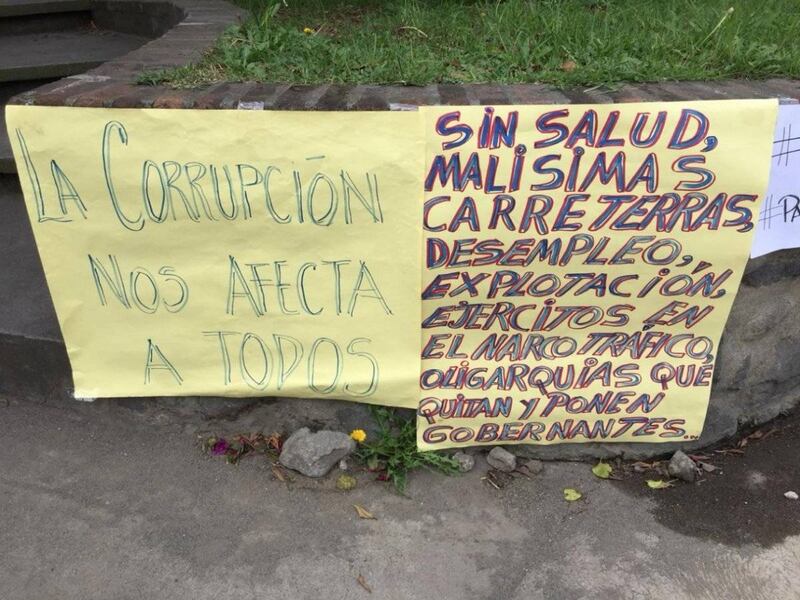 LA CORRUPCIÓN
NOS AFECTA
A TODOS
SIN SALUD,
MALISIMAS
CARRETERRAS,
DESEMPLEO,
EXPLOTACIÓN,
EJERCITOS EN
EL NARCOTRÁFICO,
OLIGARQUIAS QUÉ
QUITAN Y PONEN
GOBERNANTES...
#
#PA